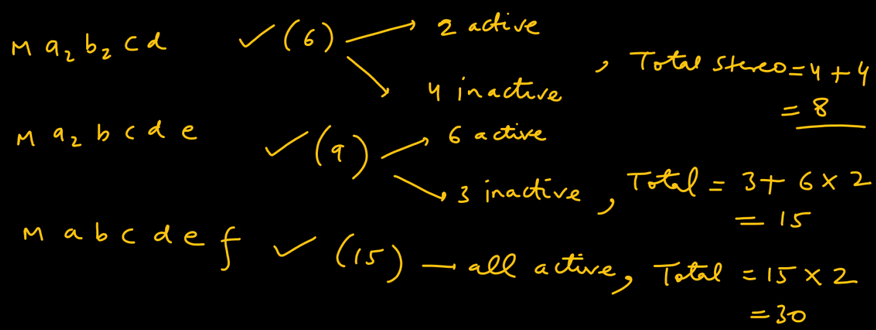 M a₂ b₂ c d ✓ (6) → 2 active
→ 4 inactive , Total stereo = 4 + 4
= 8
M a₂ b c d e ✓ (9) → 6 active
→ 3 inactive , Total = 3 + 6 × 2
= 15
M a b c d e f ✓ (15) → all active, Total = 15 × 2
= 30